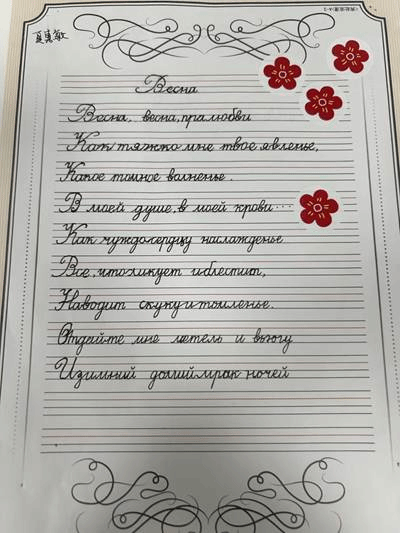 夏勇敏
Весна
Весна, весна, пра любви
Как тяжко мне твое явленье,
Какое томное волненье.
В моей душе, в моей крови...
Как чуждо сердцу наслажденье
Все, что ликует и блестит,
Наводит скуку и томленье.
Отдайте мне метель и вьюгу
И зимний долий мрак ночей